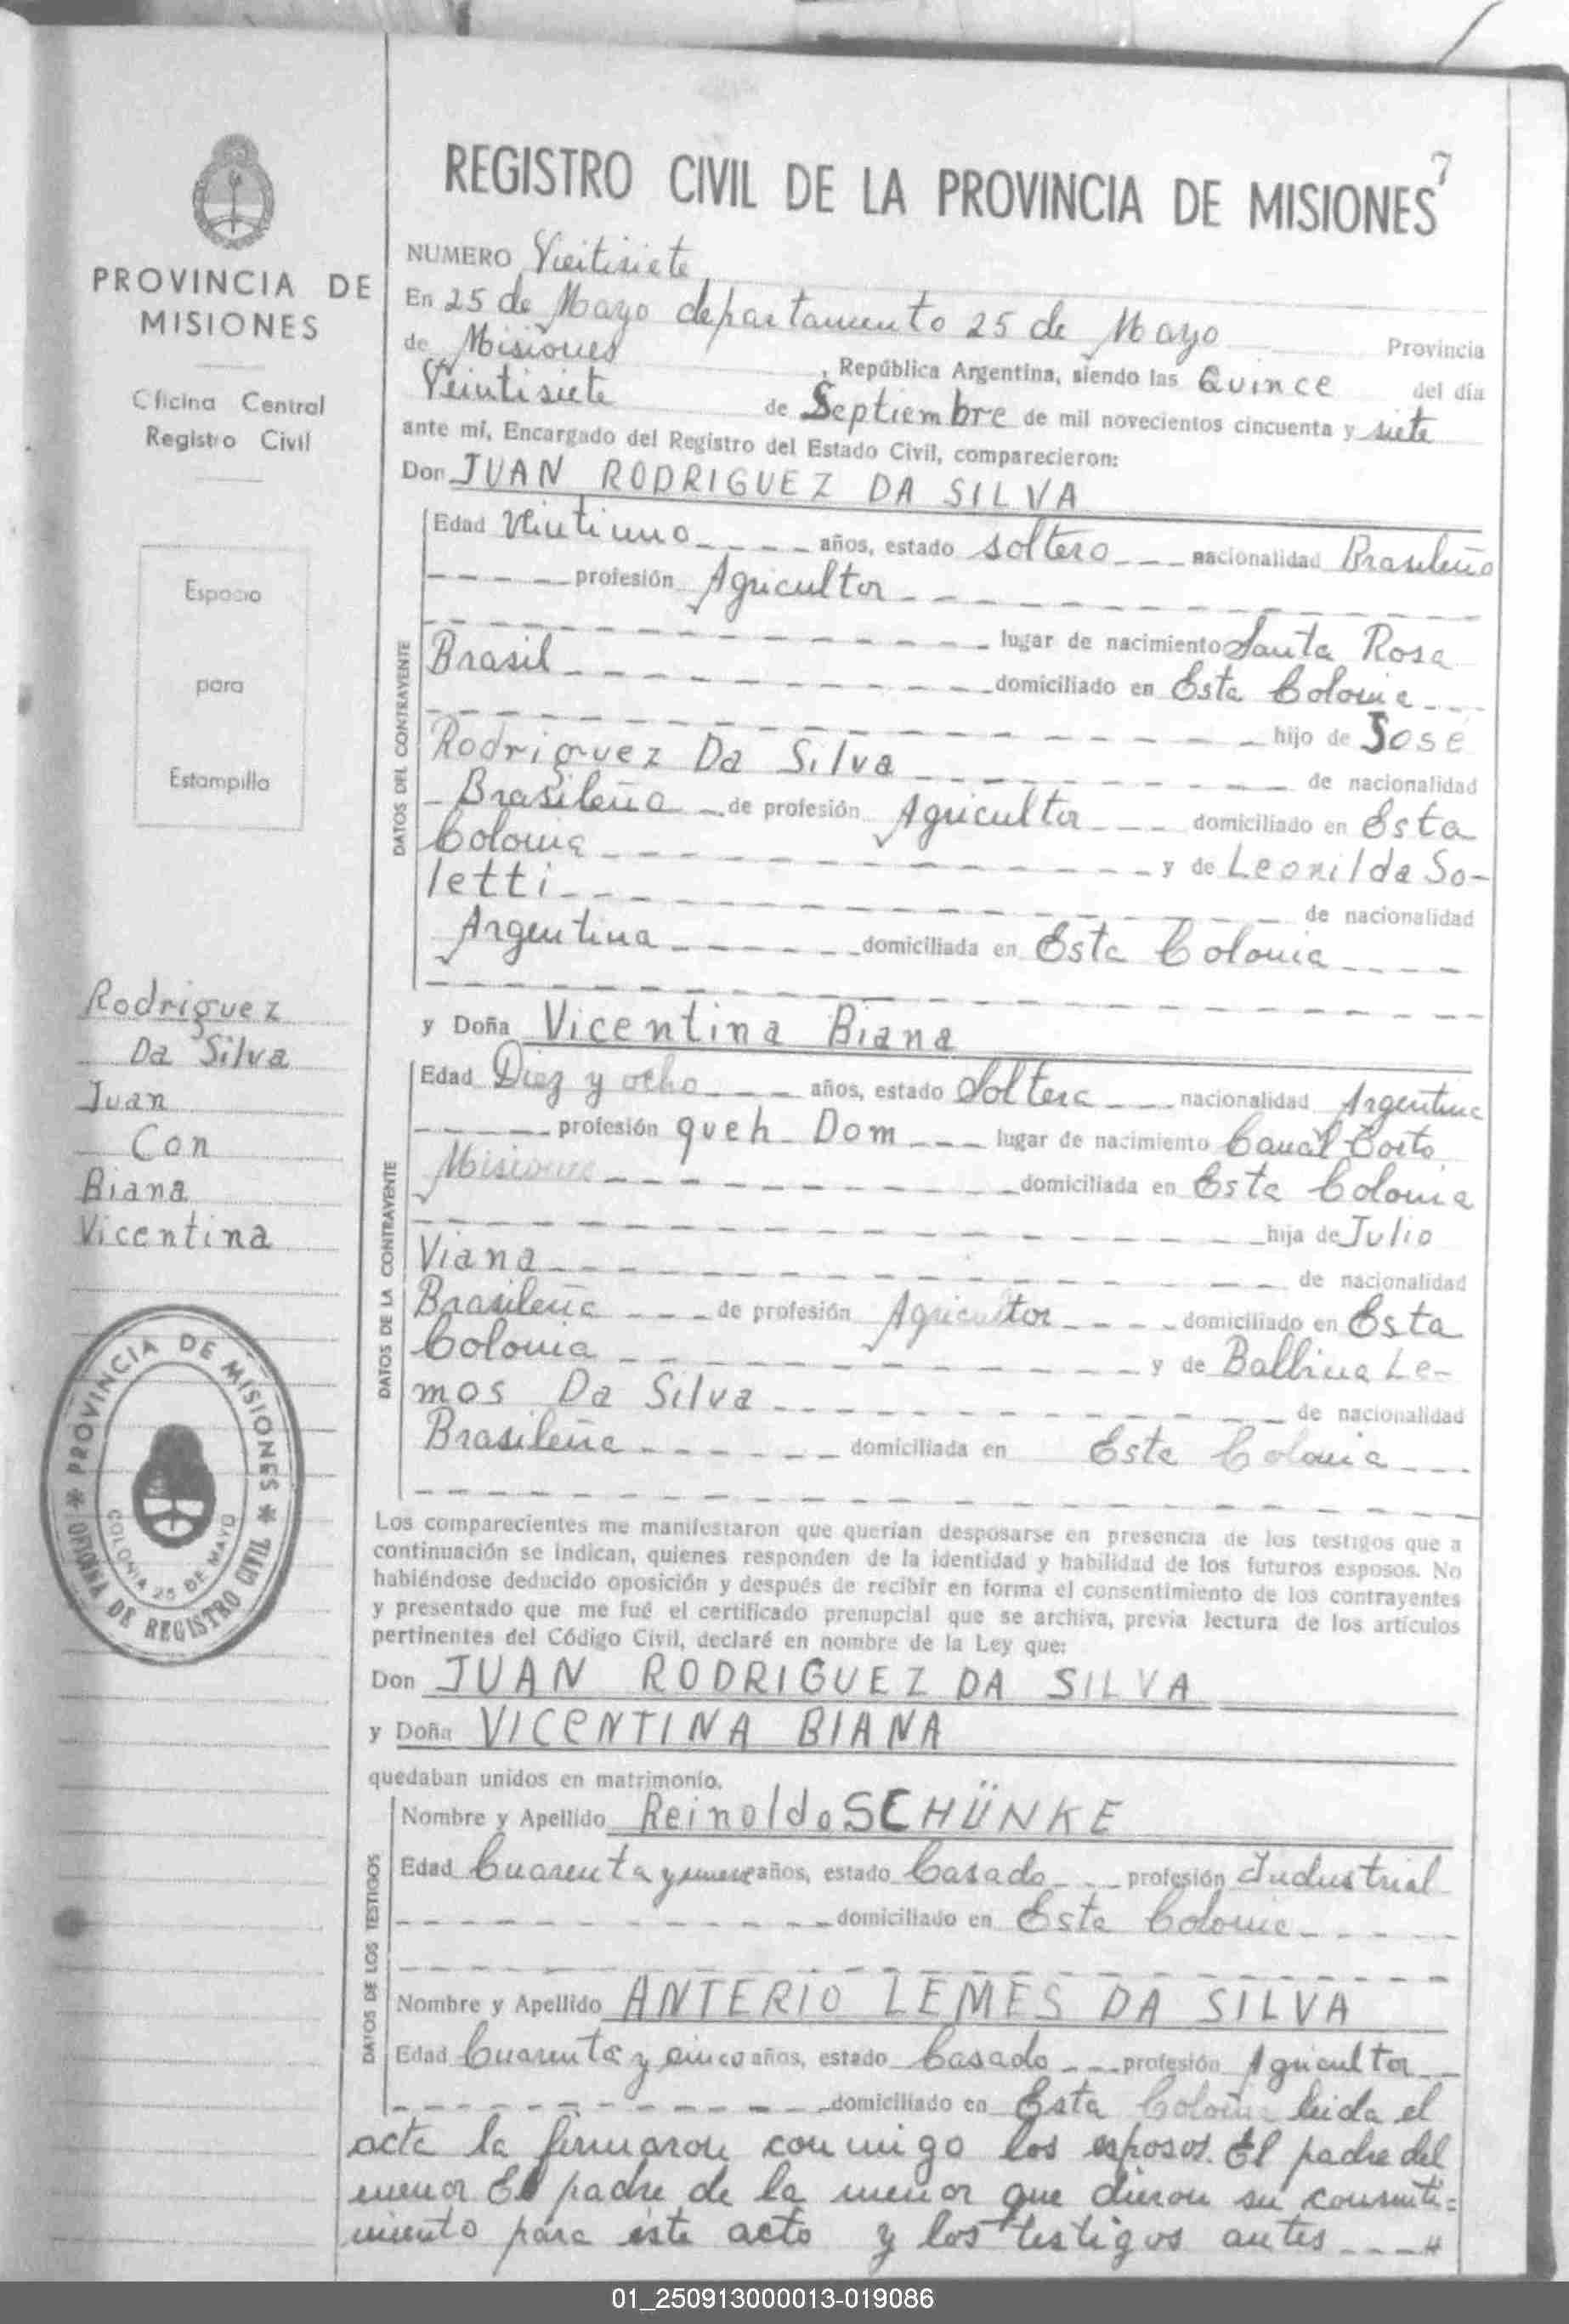 7
REGISTRO CIVIL DE LA PROVINCIA DE MISIONES
PROVINCIA DE
MISIONES
Oficina Central
Registro Civil
Espacio
para
Estampilla
Rodriguez
Da Silva
Juan
Con
Biana
Vicentina
PROVINCIA DE MISIONES
COLONIA 25 DE MAYO
OFICINA DE REGISTRO CIVIL
NUMERO Vieitisiete
En 25 de Mayo departamento 25 de Mayo Provincia
de Misiones, República Argentina, siendo las Quince del día
Veintisiete de Septiembre de mil novecientos cincuenta y siete
ante mí, Encargado del Registro del Estado Civil, comparecieron:
Don JUAN RODRIGUEZ DA SILVA
DATOS DEL CONTRAYENTE
Edad Veintiuno años, estado soltero nacionalidad Brasileño
profesión Agricultor
lugar de nacimiento Santa Rosa
Brasil domiciliado en Esta Colonia
hijo de José
Rodriguez Da Silva de nacionalidad
Brasileña de profesión Agricultor domiciliado en Esta
Colonia y de Leonilda So-
letti de nacionalidad
Argentina domiciliada en Esta Colonia
y Doña Vicentina Biana
DATOS DE LA CONTRAYENTE
Edad Diez y ocho años, estado Soltera nacionalidad Argentina
profesión queh. Dom lugar de nacimiento Canal Torto
Misiones domiciliada en Esta Colonia
hija de Julio
Viana de nacionalidad
Brasileña de profesión Agricultor domiciliado en Esta
Colonia y de Balbina Le-
mos Da Silva de nacionalidad
Brasileña domiciliada en Esta Colonia
Los comparecientes me manifestaron que querían desposarse en presencia de los testigos que a
continuación se indican, quienes responden de la identidad y habilidad de los futuros esposos. No
habiéndose deducido oposición y después de recibir en forma el consentimiento de los contrayentes
y presentado que me fué el certificado prenupcial que se archiva, previa lectura de los artículos
pertinentes del Código Civil, declaré en nombre de la Ley que:
Don JUAN RODRIGUEZ DA SILVA
y Doña VICENTINA BIANA
quedaban unidos en matrimonio.
DATOS DE LOS TESTIGOS
Nombre y Apellido Reinoldo SCHÜNKE
Edad Cuarenta y años, estado Casado profesión Industrial
domiciliado en Esta Colonia
Nombre y Apellido ANTERIO LEMES DA SILVA
Edad Cuarenta y cinco años, estado Casado profesión Agricultor
domiciliado en Esta Colonia leida el
acta la firmaron conmigo los esposos. El padre del
menor El padre de la menor que dieron su consenti=
miento para este acto y los testigos antes
01_250913000013-019086